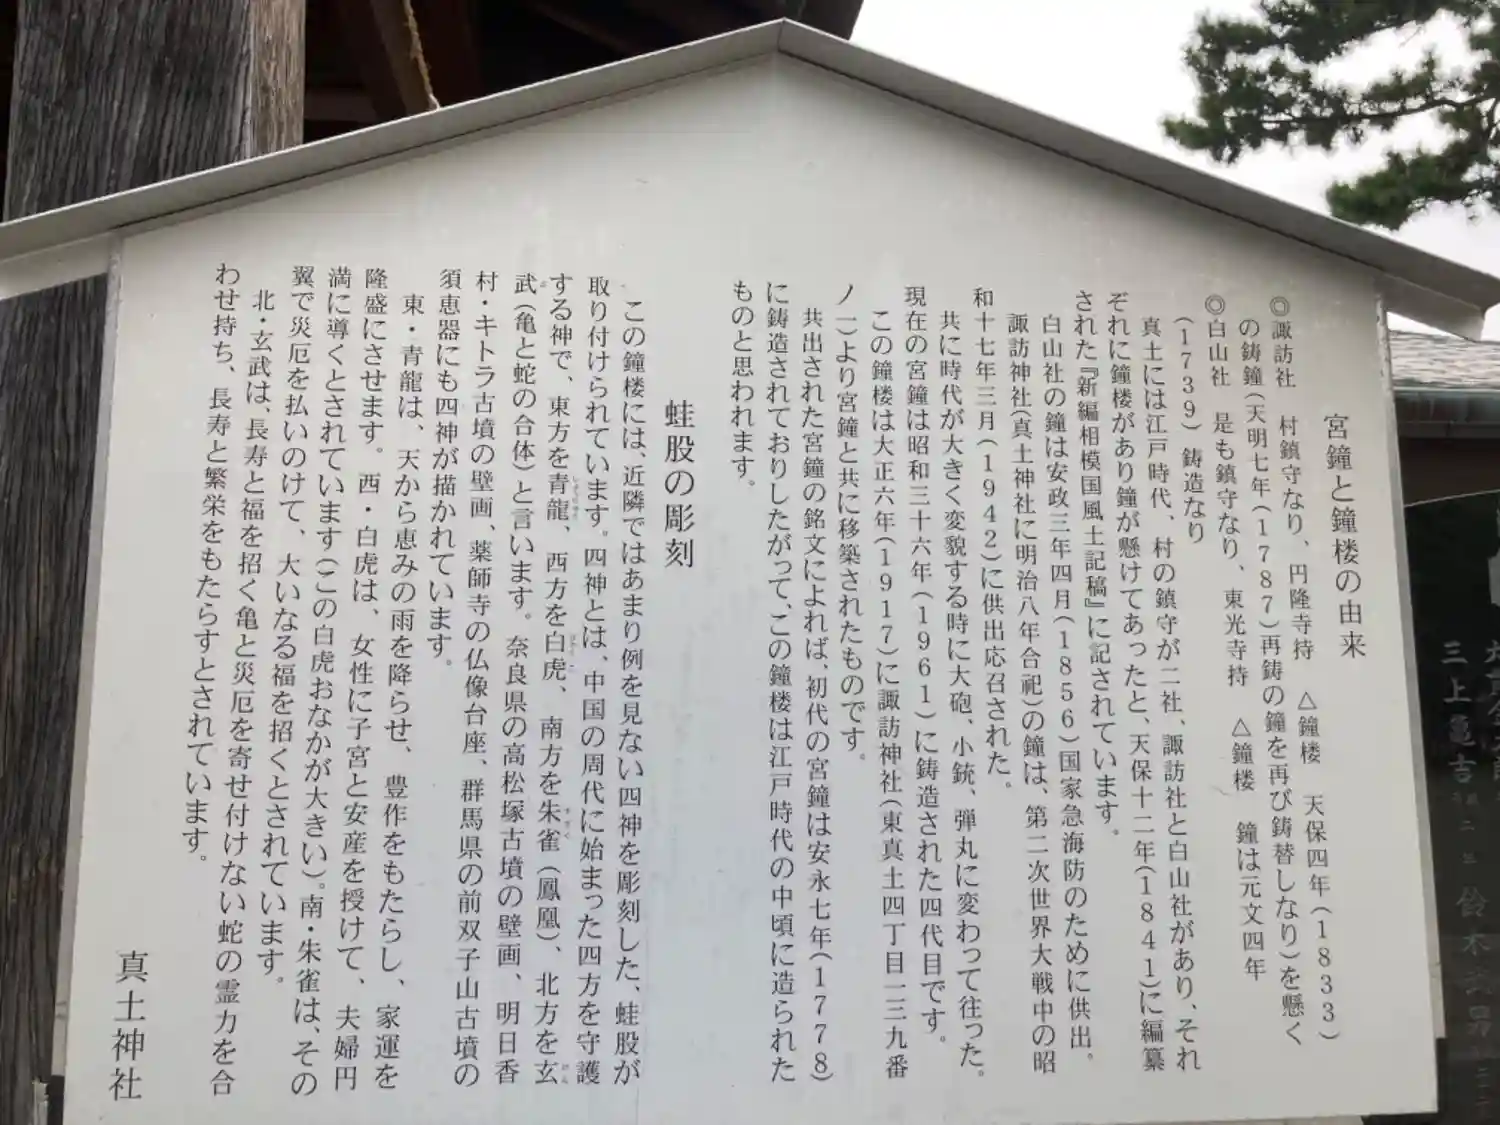 宮鐘と鐘楼の由来
◎諏訪社 村鎮守なり、円隆寺持 △鐘楼 天保四年(1833)
の鋳鐘(天明七年(1787)再鋳の鐘を再び鋳替しなり)を懸く
◎白山社 是も鎮守なり、東光寺持 △鐘楼 鐘は元文四年
(1739)鋳造なり
真土には江戸時代、村の鎮守が二社、諏訪社と白山社があり、それ
ぞれに鐘楼があり鐘が懸けてあったと、天保十二年(1841)に編纂
された『新編相模国風土記稿』に記されています。
白山社の鐘は安政三年四月(1856)国家急海防のために供出。
諏訪神社(真土神社に明治八年合祀)の鐘は、第二次世界大戦中の昭
和十七年三月(1942)に供出応召された。
共に時代が大きく変貌する時に大砲、小銃、弾丸に変わって往った。
現在の宮鐘は昭和三十六年(1961)に鋳造された四代目です。
この鐘楼は大正六年(1917)に諏訪神社(東真土四丁目一三九番
ノ一)より宮鐘と共に移築されたものです。
共出された宮鐘の銘文によれば、初代の宮鐘は安永七年(1778)
に鋳造されておりしたがって、この鐘楼は江戸時代の中頃に造られた
ものと思われます。
蛙股の彫刻
この鐘楼には、近隣ではあまり例を見ない四神を彫刻した、蛙股が
取り付けられています。四神とは、中国の周代に始まった四方を守護
する神で、東方を青龍、西方を白虎、南方を朱雀(鳳凰)、北方を玄
武(亀と蛇の合体)と言います。奈良県の高松塚古墳の壁画、明日香
村・キトラ古墳の壁画、薬師寺の仏像台座、群馬県の前双子山古墳の
須恵器にも四神が描かれています。
東・青龍は、天から恵みの雨を降らせ、豊作をもたらし、家運を
隆盛にさせます。西・白虎は、女性に子宮と安産を授けて、夫婦円
満に導くとされています(この白虎おなかが大きい)。南・朱雀は、その
翼で災厄を払いのけて、大いなる福を招くとされています。
北・玄武は、長寿と福を招く亀と災厄を寄せ付けない蛇の霊力を合
わせ持ち、長寿と繁栄をもたらすとされています。
真土神社
三上亀吉
鈴木